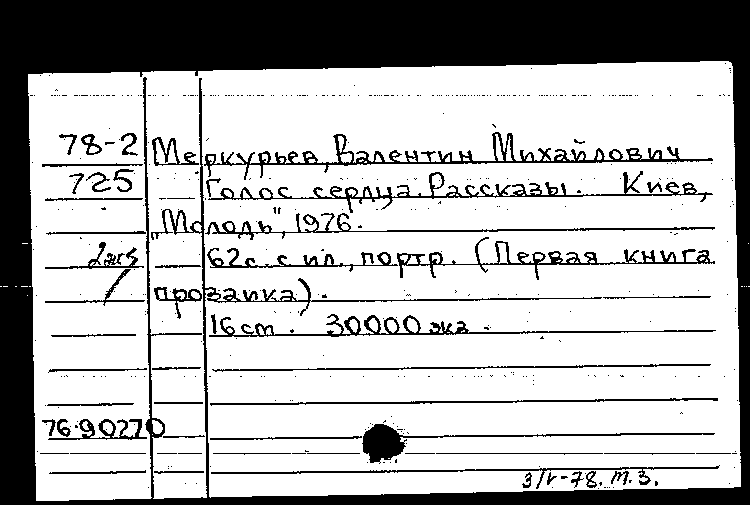 78-2 Меркурьев, Валентин Михайлович
725 Голос сердца. Рассказы. Киев,
„Молодь", 1976.
2экз 62с. с ил., портр. (Первая книга
прозаика).
16 cm. 30000 экз.
76-90270
3/V-78. т.з.